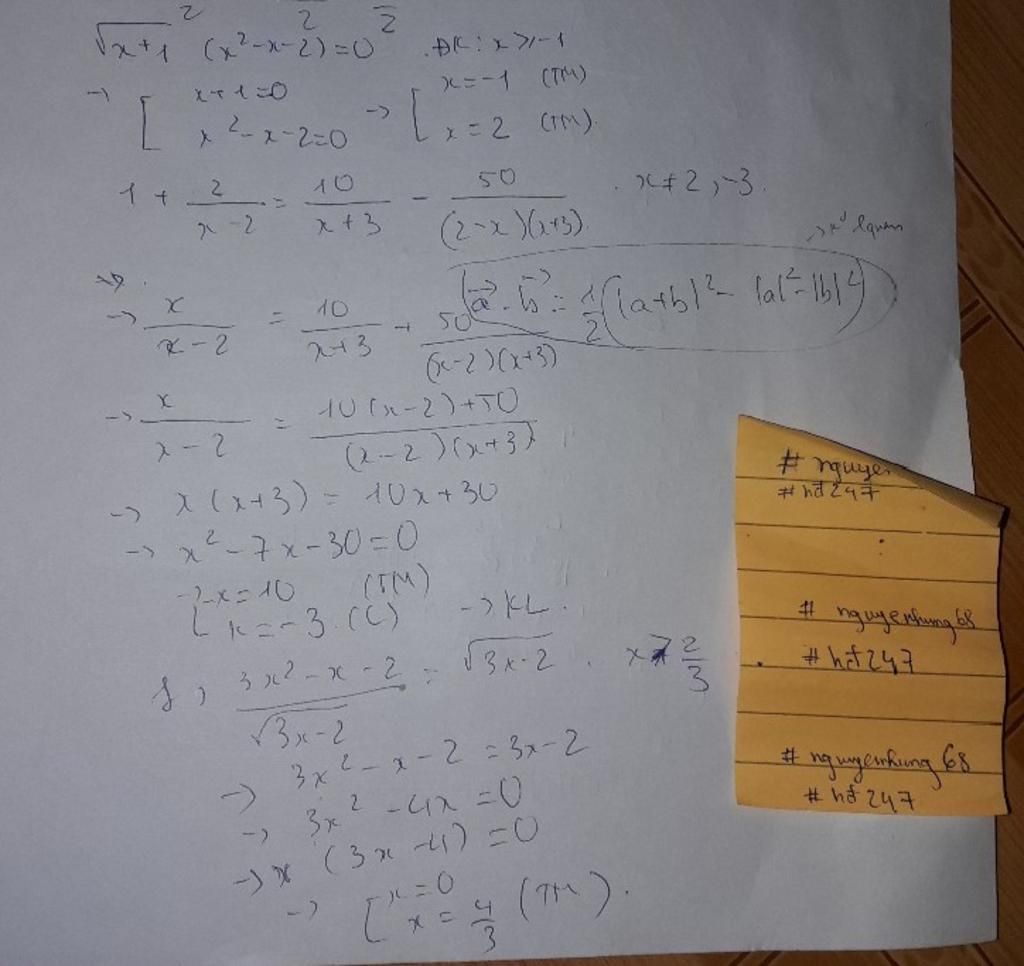 2 2 2
√x+1 (x²-x-2)=0 . ĐK: x ≥ -1
→ [ x+1=0 → [ x=-1 (TM)
x²-x-2=0 x=2 (TM).
1 + 2/(x-2) = 10/(x+3) - 50/((2-x)(x+3)) . x≠2,-3.
→ x/(x-2) = 10/(x+3) + 50/((x-2)(x+3))
(a⃗ . b⃗ = 1/2 (|a+b|² - |a|² - |b|²)
→ x/(x-2) = (10(x-2)+50)/((x-2)(x+3))
→ x(x+3) = 10x+30
→ x²-7x-30=0
→ [ x=10 (TM)
x=-3.(L) → KL.
f, (3x²-x-2)/√3x-2 = √3x-2 . x > 2/3 .
→ 3x²-x-2=3x-2
→ 3x²-4x=0
→ x(3x-4)=0
→ [ x=0
x=4/3 (TM).
# nguye
# hf247
# nguyenhung68
# hf247
# nguyenhung 68
# hf247